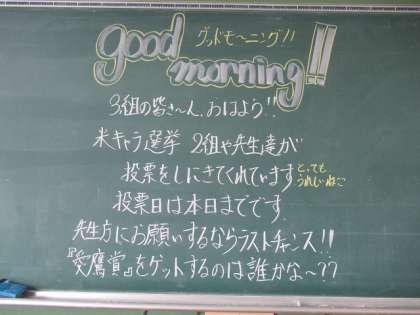 good morning!!
グッドモーニング!!
3組の皆さ〜ん、おはよう!!
米キャラ選挙 2組や先生達が
投票をしにきてくれています
とっても
うれしいねこ
投票日は本日までです。
先生方にお願いするならラストチャンス!!
『愛鷹賞』をゲットするのは誰かな〜??